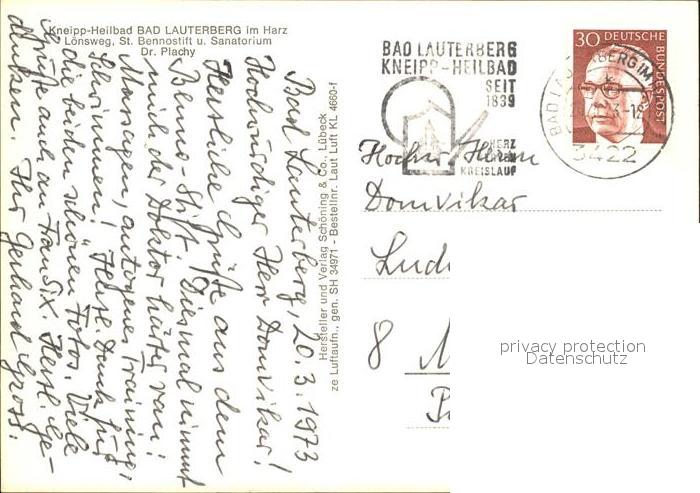 Kneipp-Heilbad BAD LAUTERBERG im Harz
Lönsweg, St. Bennostift u. Sanatorium
Dr. Plachy
Bad Lauterberg, 20.3.1973
Hochwürdiger Herr Domvikar!
Herzliche Grüße aus dem
Benno-Stift! Diesmal nimmt
mich der Doktor härter ran:
Massagen, autogenes Training,
Schwimmen! Herzl. Dank für
die beiden schönen Fotos. Viele
Grüße auch an Frau Six. Herzl. Ge-
denken. Ihr Gerhard Gross.
Hersteller und Verlag Schöning & Co., Lübeck
ze Luftaufn., gen. SH 34971 - Bestellnr. Laut Luft KL 4660-f
BAD LAUTERBERG
KNEIPP-HEILBAD
SEIT
1839
HERZ
KREISLAUF
30 DEUTSCHE
BUNDESPOST
BAD LAUTERBERG IM
3422
Hochw. Herrn
Domvikar
Lud
8 M
privacy protection
Datenschutz